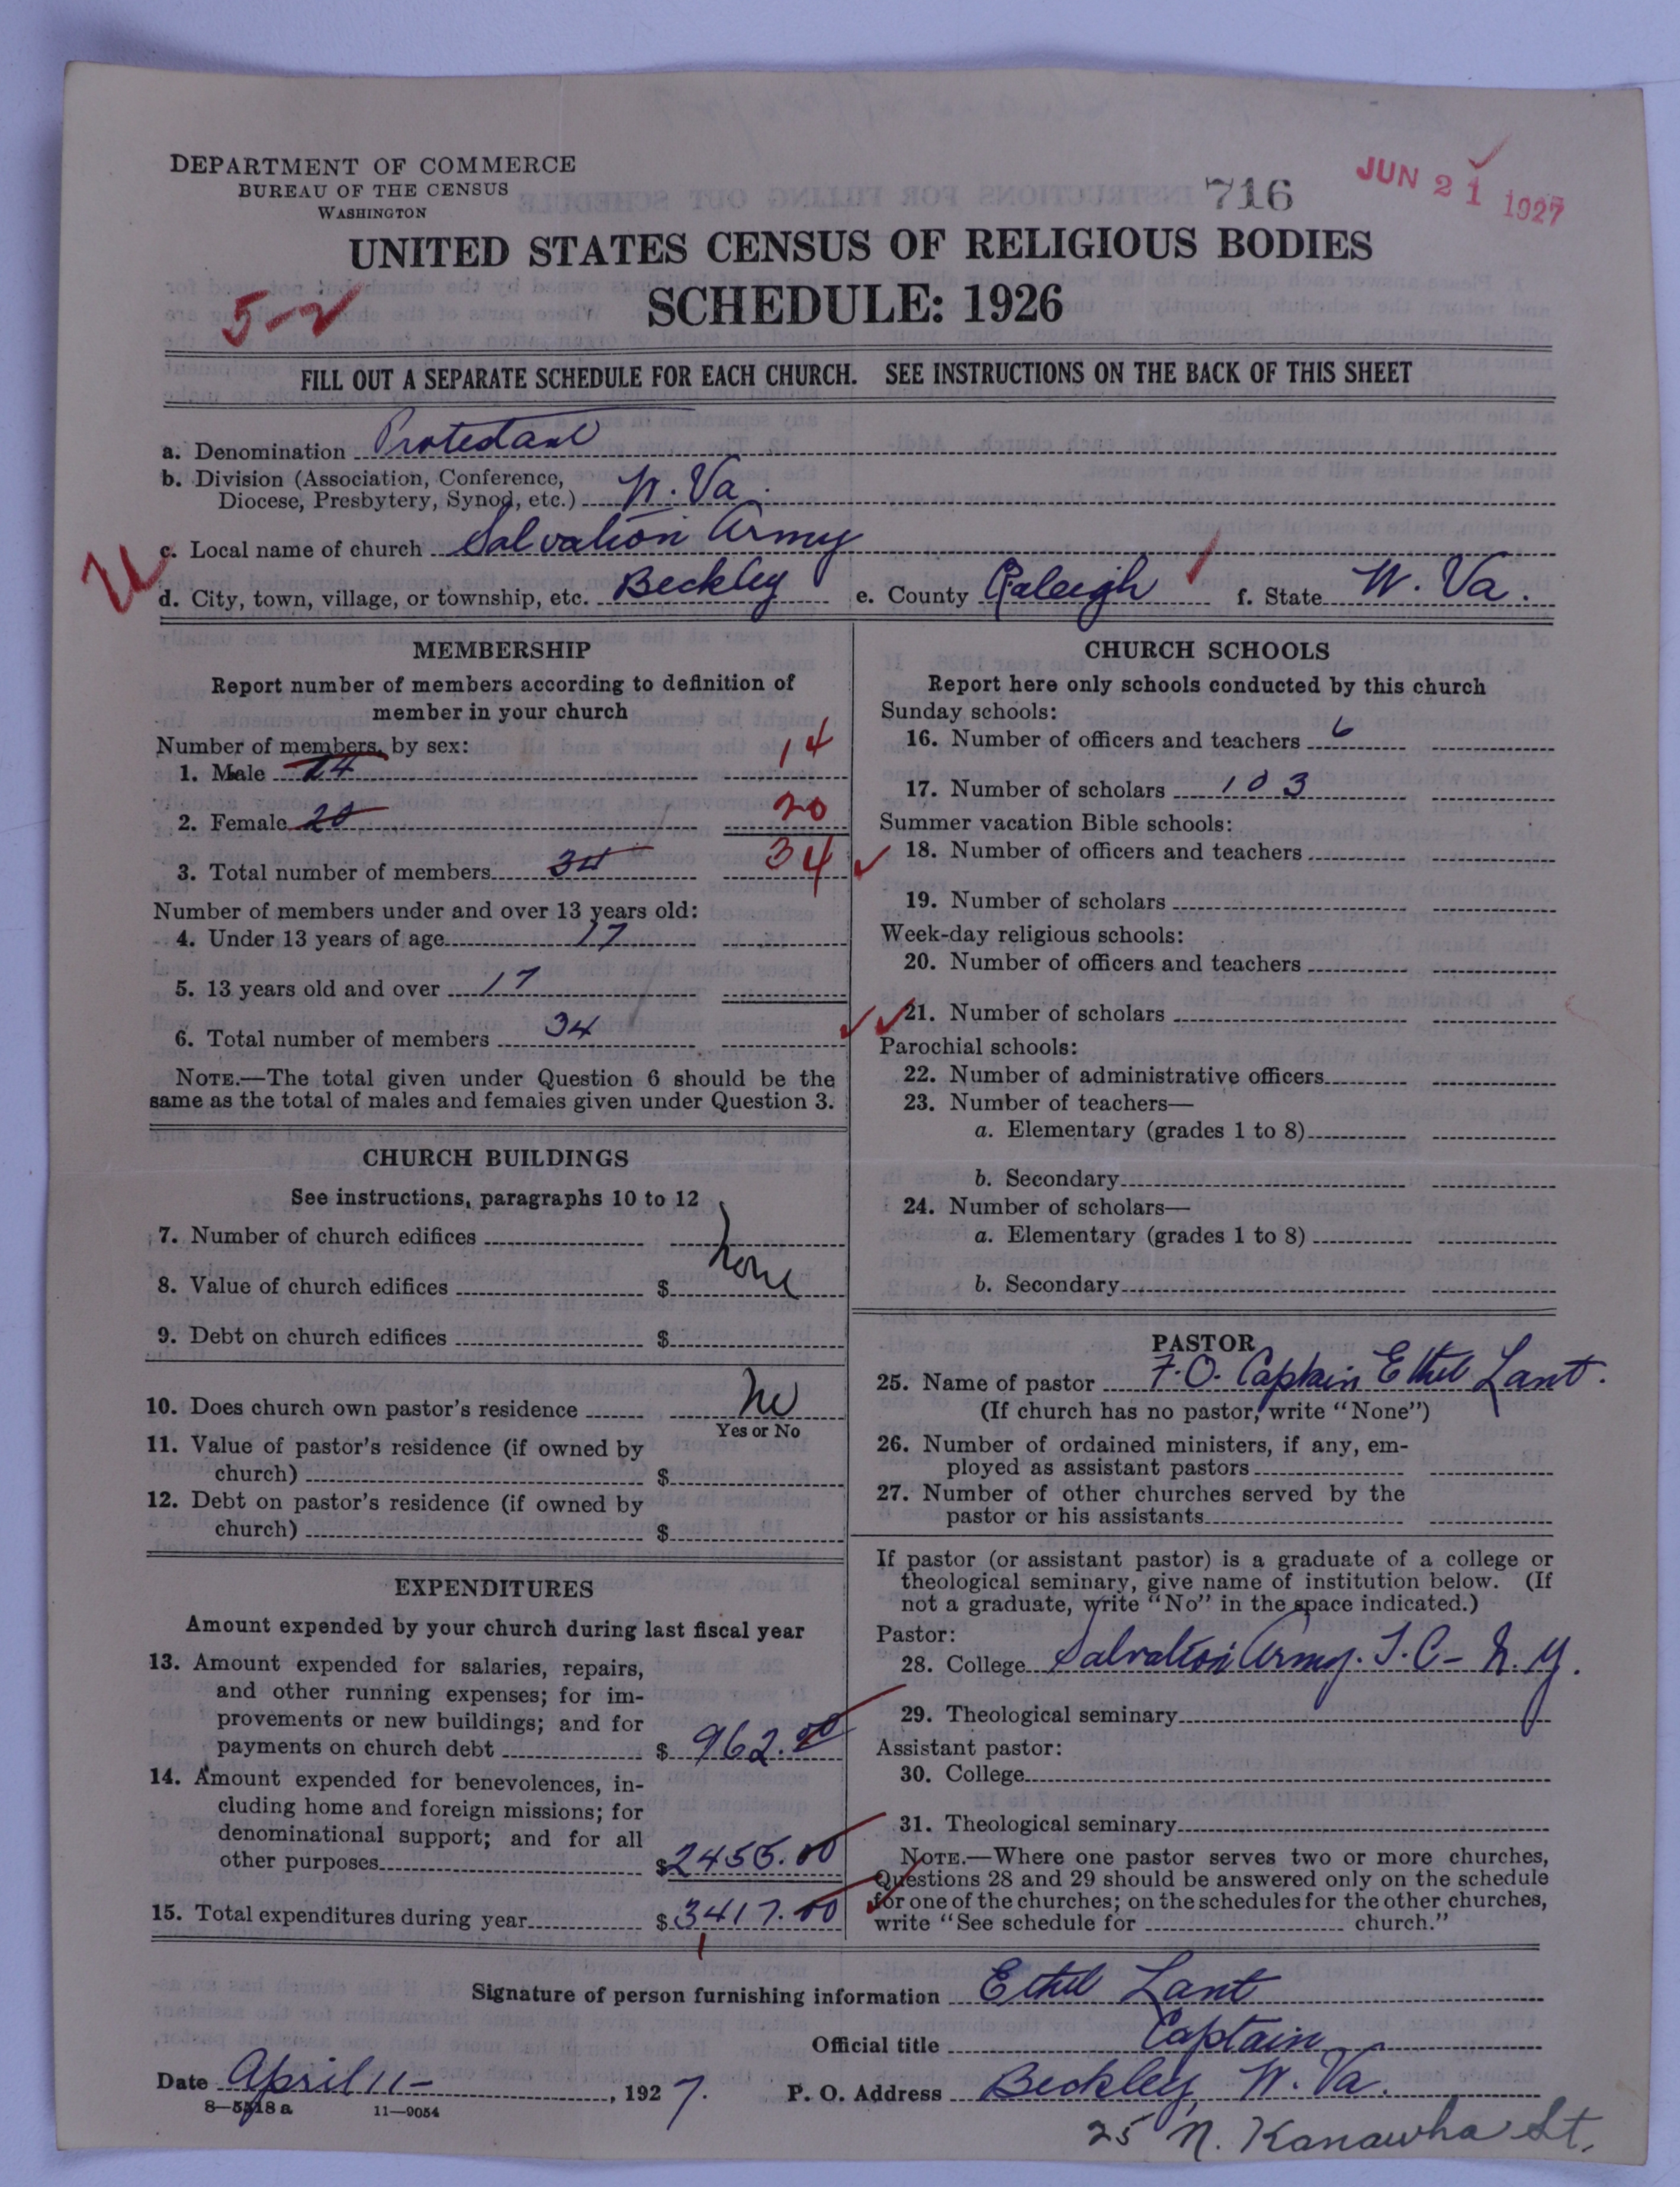 DEPARTMENT OF COMMERCE
BUREAU OF THE CENSUS
WASHINGTON
716
JUN 21 1927
UNITED STATES CENSUS OF RELIGIOUS BODIES
SCHEDULE: 1926
5-2
FILL OUT A SEPARATE SCHEDULE FOR EACH CHURCH. SEE INSTRUCTIONS ON THE BACK OF THIS SHEET
a. Denomination Protestant
b. Division (Association, Conference,
Diocese, Presbytery, Synod, etc.) W. Va.
c. Local name of church Salvation Army
d. City, town, village, or township, etc. Beckley e. County Raleigh f. State W. Va.
MEMBERSHIP
Report number of members according to definition of
member in your church
Number of members, by sex:
1. Male 14 14
2. Female 20 20
3. Total number of members 34 34
Number of members under and over 13 years old:
4. Under 13 years of age 17
5. 13 years old and over 17
6. Total number of members 34
NOTE.—The total given under Question 6 should be the
same as the total of males and females given under Question 3.
CHURCH BUILDINGS
See instructions, paragraphs 10 to 12
7. Number of church edifices
none
8. Value of church edifices $
9. Debt on church edifices $
10. Does church own pastor's residence No
Yes or No
11. Value of pastor's residence (if owned by
church) $
12. Debt on pastor's residence (if owned by
church) $
EXPENDITURES
Amount expended by your church during last fiscal year
13. Amount expended for salaries, repairs,
and other running expenses; for im-
provements or new buildings; and for
payments on church debt $ 962.00
14. Amount expended for benevolences, in-
cluding home and foreign missions; for
denominational support; and for all
other purposes $ 2455.00
15. Total expenditures during year $ 3417.00
CHURCH SCHOOLS
Report here only schools conducted by this church
Sunday schools:
16. Number of officers and teachers 6
17. Number of scholars 103
Summer vacation Bible schools:
18. Number of officers and teachers
19. Number of scholars
Week-day religious schools:
20. Number of officers and teachers
21. Number of scholars
Parochial schools:
22. Number of administrative officers
23. Number of teachers—
a. Elementary (grades 1 to 8)
b. Secondary
24. Number of scholars—
a. Elementary (grades 1 to 8)
b. Secondary
PASTOR
25. Name of pastor F.O. Captain Ethel Lant.
(If church has no pastor, write "None")
26. Number of ordained ministers, if any, em-
ployed as assistant pastors
27. Number of other churches served by the
pastor or his assistants
If pastor (or assistant pastor) is a graduate of a college or
theological seminary, give name of institution below. (If
not a graduate, write "No" in the space indicated.)
Pastor:
28. College Salvation Army. T.C- N.Y.
29. Theological seminary
Assistant pastor:
30. College
31. Theological seminary
NOTE.—Where one pastor serves two or more churches,
Questions 28 and 29 should be answered only on the schedule
for one of the churches; on the schedules for the other churches,
write "See schedule for church."
Signature of person furnishing information Ethel Lant
Official title Captain
Date April 11-, 1927. P. O. Address Beckley, W. Va.
8-5518a 11-9054
25 N. Kanawha St.